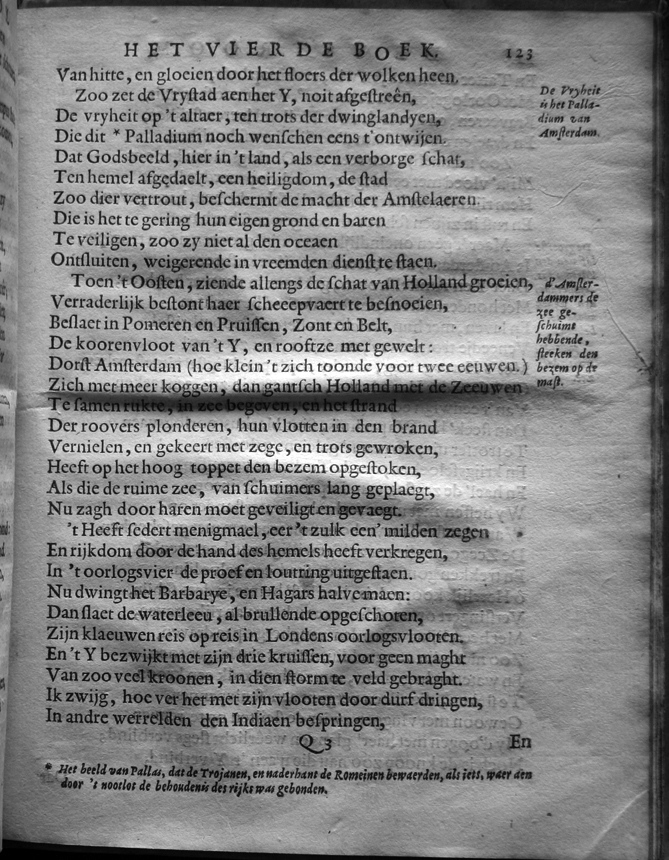 HET VIERDE BOEK. 123
Van hitte, en gloeien door het floers der wolken heen.
Zoo zet de Vryſtad aen het Y, noit afgeſtreên,
De vryheit op 't altaer, ten trots der dwinglandyen,
Die dit * Palladium noch wenſchen eens t'ontwijen.
Dat Godsbeeld, hier in 't land, als een verborge ſchat,
Ten hemel afgedaelt, een heiligdom, de ſtad
Zoo dier vertrout, beſchermt de macht der Amſtelaeren.
Die is het te gering hun eigen grond en baren
Te veiligen, zoo zy niet al den oceaen
Ontſluiten, weigerende in vreemden dienſt te ſtaen.
De Vryheit
is het Palla-
dium van
Amſterdam.
Toen 't Ooſten, ziende allengs de ſchat van Holland groeien,
Verraderlijk beſtont haer ſcheeepvaert te beſnoeien,
Beſlaet in Pomeren en Pruiſſen, Zont en Belt,
De koorenvloot van 't Y, en rooftze met gewelt:
Dorſt Amſterdam (hoe klein 't zich toonde voor twee eeuwen.)
Zich met meer koggen, dan gantſch Holland met de Zeeuwen
Te ſamen rukte, in zee begeven, en het ſtrand
Der roovers plonderen, hun vlotten in den brand
Vernielen, en gekeert met zege, en trots gewroken,
Heeft op het hoog toppet den bezem opgeſtoken,
Als die de ruime zee, van ſchuimers lang geplaegt,
Nu zagh door haren moet geveiligt en gevaegt.
d'Amſter-
dammers de
zee ge-
ſchuimt
hebbende,
ſteeken den
bezem op de
maſt.
't Heeft ſedert menigmael, eer 't zulk een' milden zegen
En rijkdom door de hand des hemels heeft verkregen,
In 't oorlogsvier de proef en loutring uitgeſtaen.
Nu dwingt het Barbarye, en Hagars halve maen:
Dan ſlaet de waterleeu, al brullende opgeſchoten,
Zijn klaeuwen reis op reis in Londens oorlogsvlooten.
En 't Y bezwijkt met zijn drie kruiſſen, voor geen maght
Van zoo veel kroonen, in dien ſtorm te veld gebraght.
Ik zwijg, hoe ver het met zijn vlooten door durf dringen,
In andre werrelden den Indiaen beſpringen,
Q 3 En
* Het beeld van Pallas, dat de Trojanen, en naderhant de Romeinen bewaerden, als iets, waer aen
door 't nootlot de behoudenis des rijks was gebonden.